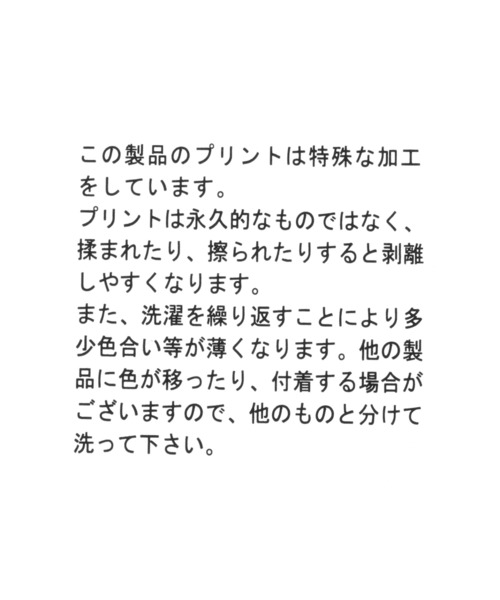 この製品のプリントは特殊な加工
をしています。
プリントは永久的なものではなく、
揉まれたり、擦られたりすると剥離
しやすくなります。
また、洗濯を繰り返すことにより多
少色合い等が薄くなります。他の製
品に色が移ったり、付着する場合が
ございますので、他のものと分けて
洗って下さい。